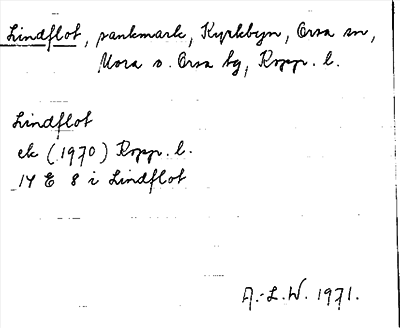 Lindflot, sankmark, Kyrkbyn, Orsa sn,
Mora o. Orsa tg, Kopp. l.
Lindflot
ek (1970) Kopp. l.
14 E 8 i Lindflot
A.-L.W. 1971.